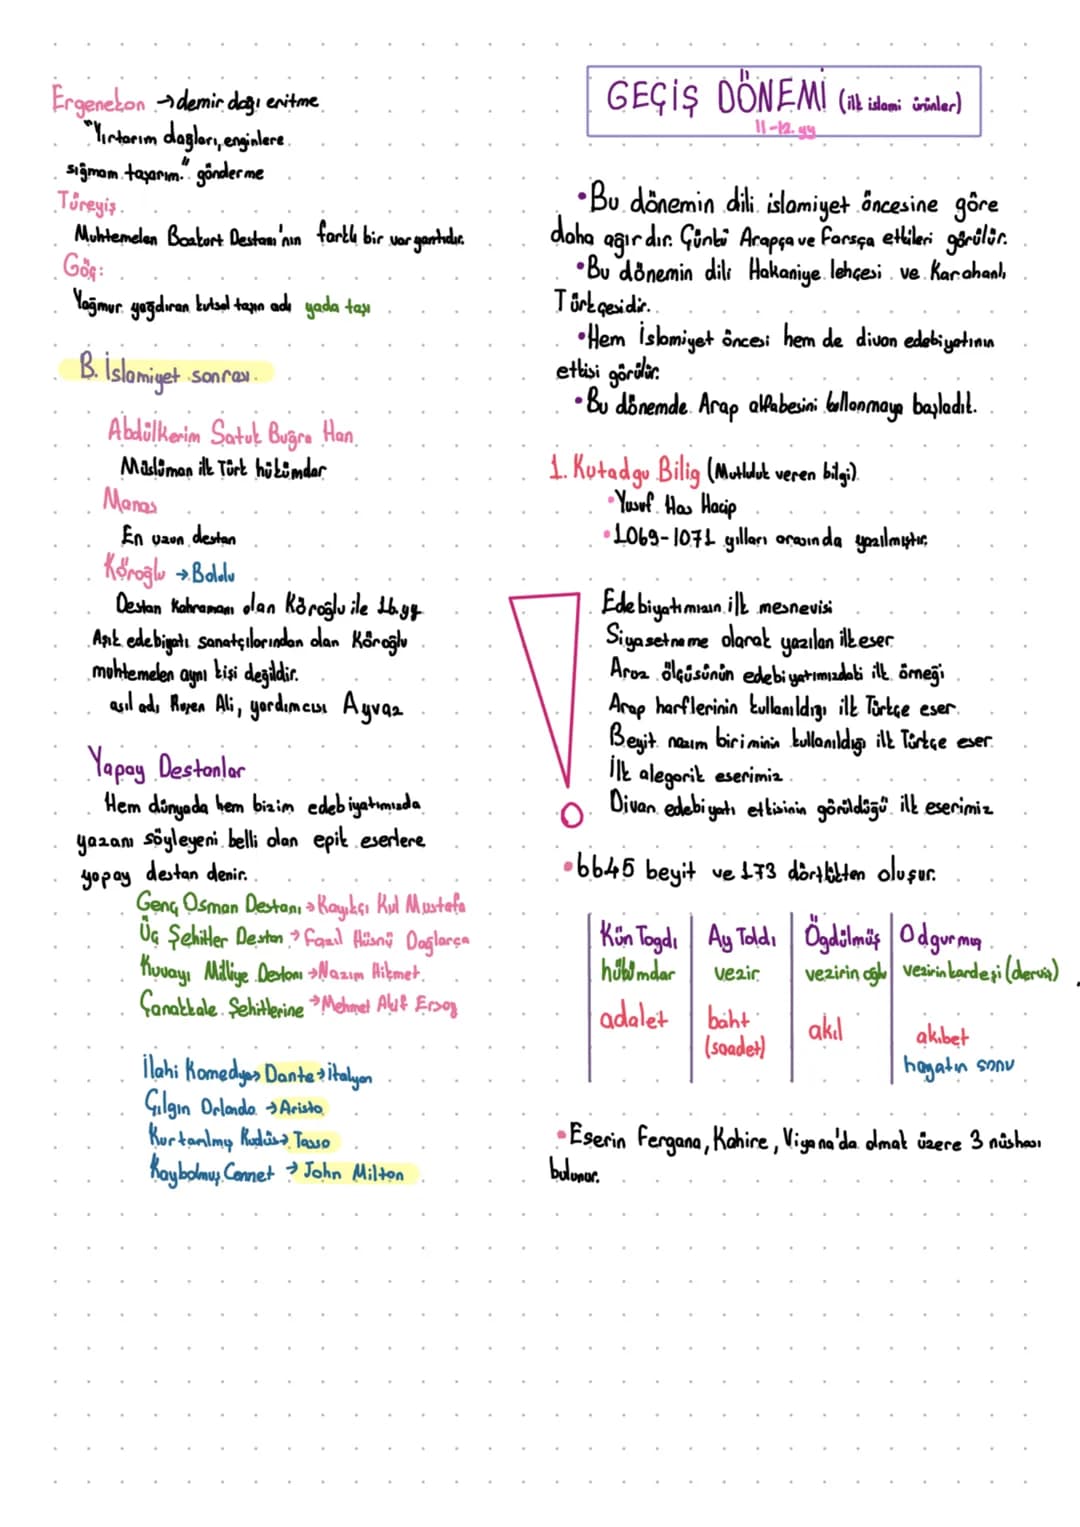 Ergenekon → demir dağı eritme
"Yırtarım dağları, enginlere
sığmam taşarım." gönderme
Türeyiş
Muhtemelen Bozkurt Destanı'nın farklı bir varyantıdır.
Göç:
Yağmur yağdıran kutsal taşın adı yada taşı
B. İslamiyet sonrası
Abdülkerim Satuk Buğra Han
Müslüman ilk Türk hükümdar
Manas
En uzun destan
Köroğlu → Bolulu
Destan kahramanı olan Köroğlu ile 16.yy
Aşık edebiyatı sanatçılarından olan Köroğlu
muhtemelen aynı kişi değildir.
asıl adı Ruşen Ali, yardımcısı Ayvaz
Yapay Destanlar
Hem dünyada hem bizim edebiyatımızda
yazanı söyleyeni belli olan epik eserlere
yapay destan denir.
Genç Osman Destanı → Kayıkçı Kul Mustafa
Üç Şehitler Destanı → Fazıl Hüsnü Dağlarca
Kuvayı Milliye Destanı → Nazım Hikmet
Çanakkale Şehitlerine → Mehmet Akif Ersoy
İlahi Komedya → Dante → italyan
Çılgın Orlando → Aristo
Kurtarılmış Kudüs → Tasso
Kaybolmuş Cennet → John Milton
GEÇİŞ DÖNEMİ (ilk islami ürünler)
11-12. yy
• Bu dönemin dili islamiyet öncesine göre
daha ağırdır. Çünkü Arapça ve Farsça etkileri görülür.
• Bu dönemin dili Hakaniye lehçesi ve Karahanlı
Türkçesidir.
• Hem İslamiyet öncesi hem de divan edebiyatının
etkisi görülür.
• Bu dönemde Arap alfabesini kullanmaya başladık.
1. Kutadgu Bilig (Mutluluk veren bilgi)
• Yusuf Has Hacip
• 1069-1071 yılları arasında yazılmıştır.
Edebiyatımızın ilk mesnevisi
Siyasetname olarak yazılan ilk eser
Aruz ölçüsünün edebiyatımızdaki ilk örneği
Arap harflerinin kullanıldığı ilk Türkçe eser
Beyit nazım biriminin kullanıldığı ilk Türkçe eser
İlk alegorik eserimiz
Divan edebiyatı etkisinin görüldüğü ilk eserimiz
• 6645 beyit ve 173 dörtlükten oluşur.
Kün Togdı Ay Toldı Ögdülmüş Odgurmış
hükümdar vezir vezirin oğlu vezirin kardeşi (derviş)
adalet baht akıl akıbet
(saadet) hayatın sonu
• Eserin Fergana, Kahire, Viyana'da olmak üzere 3 nüshası
bulunur.